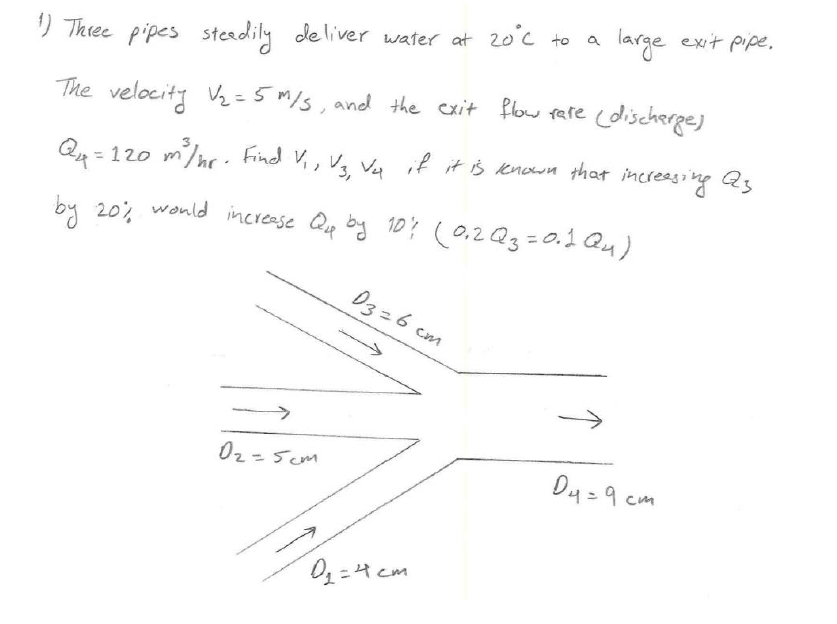 1) Three pipes steadily deliver water at 20°C to a large exit pipe.
The velocity V₂ = 5 m/s, and the exit flow rate (discharge)
Q₄ = 120 m³/hr. Find V₁, V₃, V₄ if it is known that increasing Q₃
by 20% would increase Q₄ by 10% (0.2 Q₃ = 0.1 Q₄)
D₃ = 6 cm
D₂ = 5 cm
D₄ = 9 cm
D₁ = 4 cm